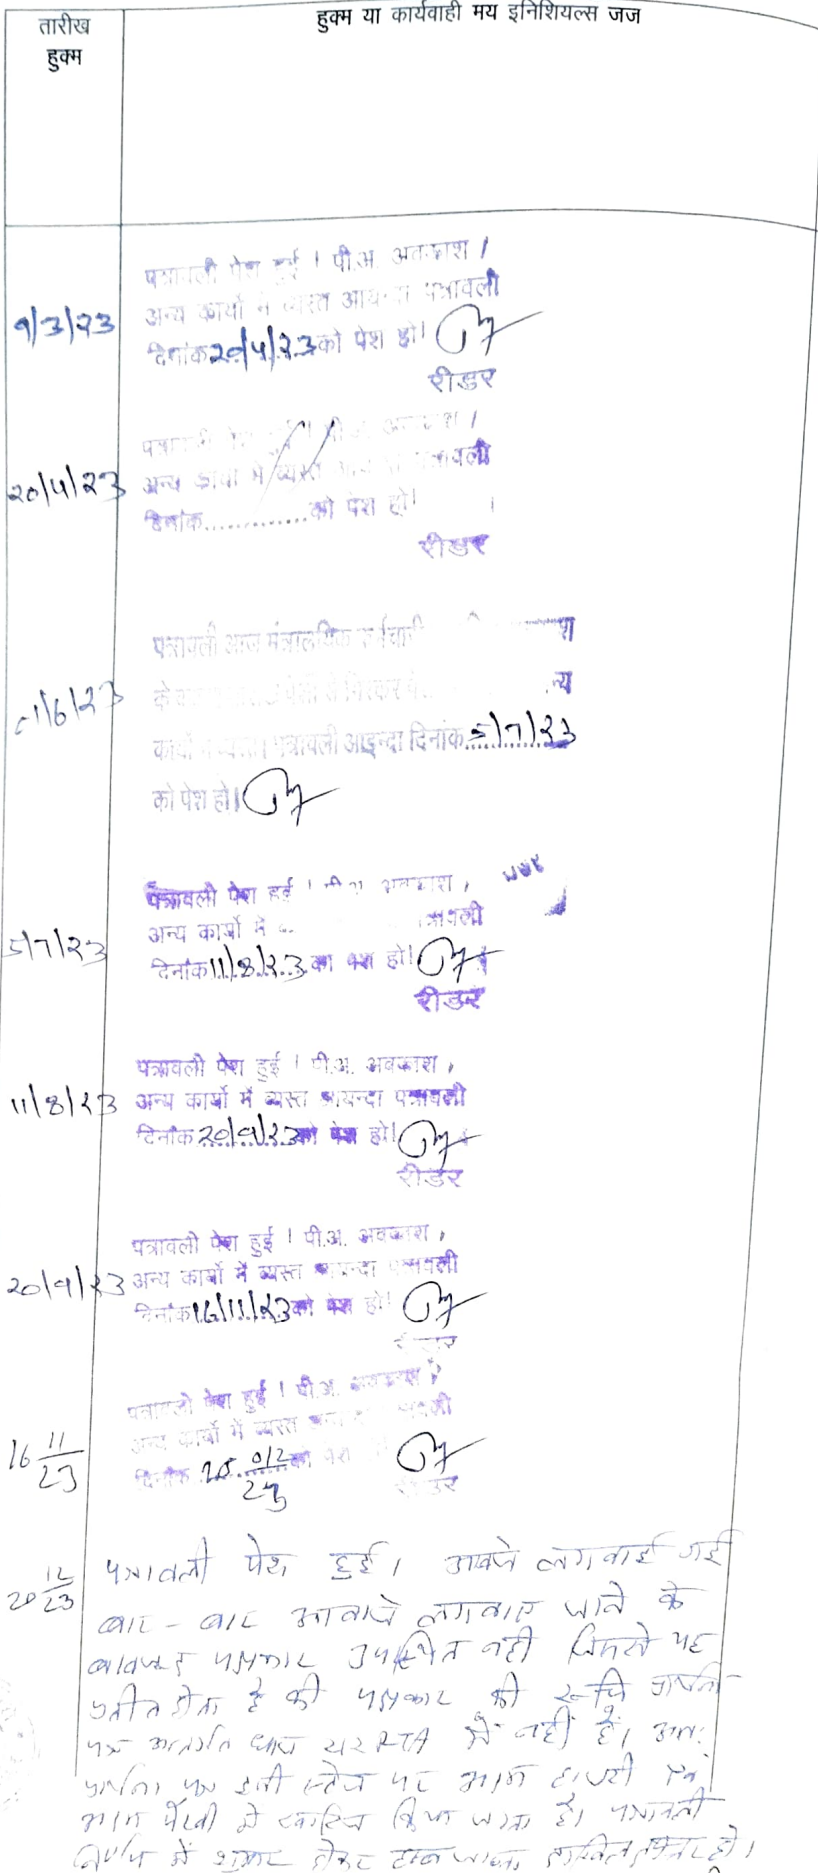 तारीख
हुक्म
हुक्म या कार्यवाही मय इनिशियल्स जज
9/3/23
पत्रावली पेश हुई । पी.अ. अवकाश /
अन्य कार्यो में व्यस्त आयन्दा पत्रावली
दिनांक 20/4/23 को पेश हो।
रीडर
20/4/23
अन्य कार्यो में व्यस्त
दिनांक............... को पेश हो।
रीडर
1/6/23
पत्रावली आज मंत्रालयिक कर्मचारी
के
कार्यो में व्यस्त। पत्रावली आइन्दा दिनांक 5/7/23
को पेश हो।
5/7/23
पत्रावली पेश हुई । पी.अ. अवकाश,
अन्य कार्यो में पत्रावली
दिनांक 11/8/23 को पेश हो।
रीडर
11/8/23
पत्रावली पेश हुई । पी.अ. अवकाश,
अन्य कार्यो में व्यस्त आयन्दा पत्रावली
दिनांक 20/9/23 को पेश हो।
रीडर
20/9/23
पत्रावली पेश हुई । पी.अ. अवकाश,
अन्य कार्यो में व्यस्त आयन्दा पत्रावली
दिनांक 16/11/23 को पेश हो।
रीडर
16 11/23
पत्रावली पेश हुई । पी.अ. अवकाश,
अन्य कार्यो में व्यस्त
दिनांक 20 12/23 को पेश
रीडर
20 12/23
पत्रावली पेश हुई। आवाजे लगवाई गई
बार-बार आवाजे लगवाए जाने के
बावजूद पक्षकार उपस्थित नही जिससे यह
प्रतीत होता है की पक्षकार की रूचि प्रार्थना
पत्र अन्तर्गत धारा RTA में नहीं है। अतः
प्रार्थना पत्र इसी स्टेज पर अदम हाजरी एवं
अदम पैरवी में खारिज किया जाता है। पत्रावली
में शुमार होकर दाखिल दफ्तर हो।